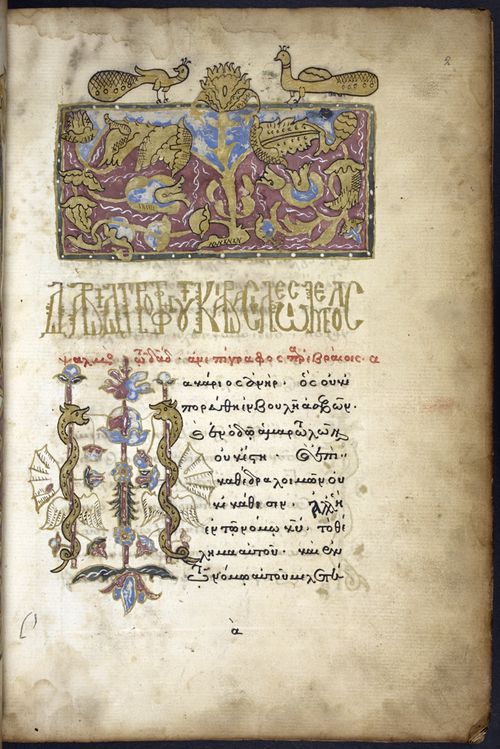 2
ψαλμὸς τῷ δαδ· ἀνεπίγραφος παρ' ἑβραίοις· α
Μακάριος ἀνήρ· ὃς οὐκ ἐ
πορεύθη ἐν βουλῇ ἀσεβῶν·
καὶ ἐν ὁδῷ ἁμαρτωλῶν
οὐκ ἔστη· καὶ ἐπὶ
καθέδρα λοιμῶν οὐ
κ ἐκάθισεν· ἀλλ' ἢ
ἐν τῶ νόμω κυ· τὸ θέ
λημα αὐτοῦ· καὶ ἐν
τῶ νόμω αὐτοῦ μελετή
α